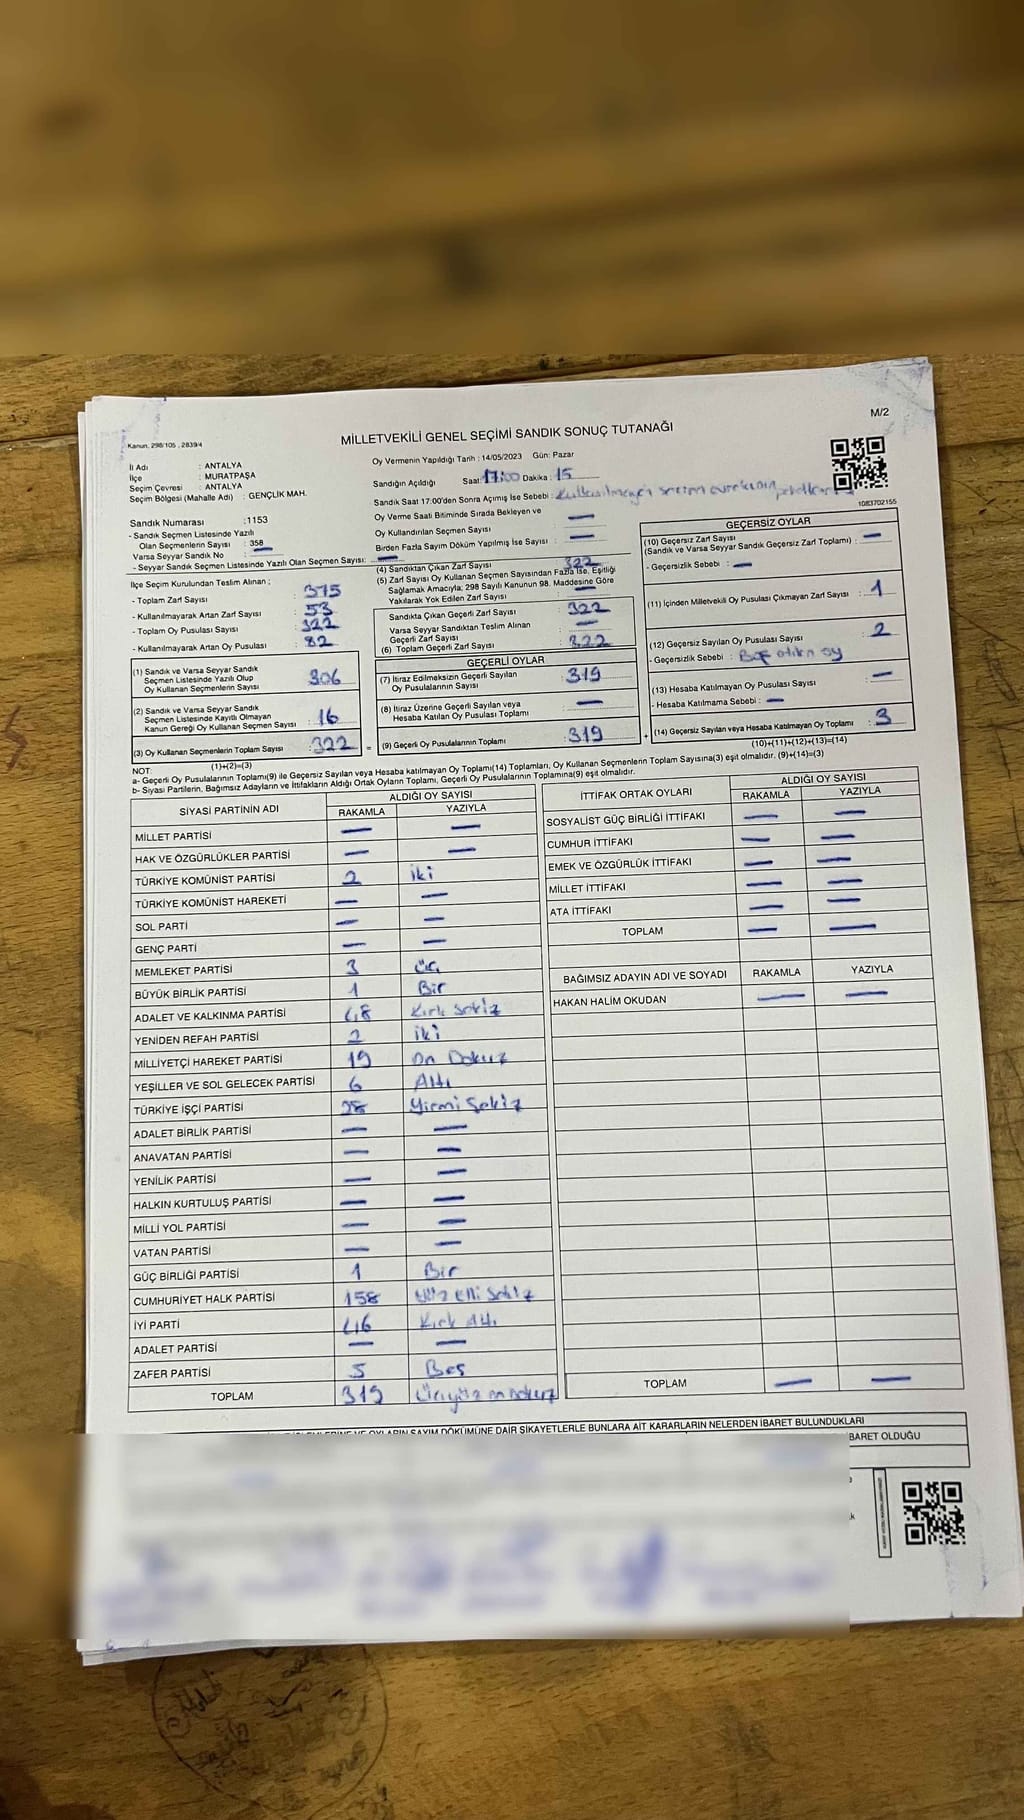 M/2
Kanun, 298/105 , 2839/4
MİLLETVEKİLİ GENEL SEÇİMİ SANDIK SONUÇ TUTANAĞI
İl Adı : ANTALYA
İlçe : MURATPAŞA
Seçim Çevresi : ANTALYA
Seçim Bölgesi (Mahalle Adı) : GENÇLİK MAH.
Oy Vermenin Yapıldığı Tarih : 14/05/2023 Gün: Pazar
Sandığın Açıldığı Saat 17:00 Dakika : 15
Sandık Saat 17:00'den Sonra Açımış İse Sebebi :
1083702155
Sandık Numarası :1153
- Sandık Seçmen Listesinde Yazılı
Olan Seçmenlerin Sayısı : 358
Varsa Seyyar Sandık No : —
- Seyyar Sandık Seçmen Listesinde Yazılı Olan Seçmen Sayısı: —
Oy Verme Saati Bitiminde Sırada Bekleyen ve
Oy Kullandırılan Seçmen Sayısı —
Birden Fazla Sayım Döküm Yapılmış İse Sayısı : —
İlçe Seçim Kurulundan Teslim Alınan ;
- Toplam Zarf Sayısı : 375
- Kullanılmayarak Artan Zarf Sayısı : 53
- Toplam Oy Pusulası Sayısı : 322
- Kullanılmayarak Artan Oy Pusulası : 82
(1) Sandık ve Varsa Seyyar Sandık
Seçmen Listesinde Yazılı Olup
Oy Kullanan Seçmenlerin Sayısı : 306
(2) Sandık ve Varsa Seyyar Sandık
Seçmen Listesinde Kayıtlı Olmayan
Kanun Gereği Oy Kullanan Seçmen Sayısı : 16
(3) Oy Kullanan Seçmenlerin Toplam Sayısı : 322
(1)+(2)=(3)
(4) Sandıktan Çıkan Zarf Sayısı : 322
(5) Zarf Sayısı Oy Kullanan Seçmen Sayısından Fazla İse, Eşitliği
Sağlamak Amacıyla; 298 Sayılı Kanunun 98. Maddesine Göre
Yakılarak Yok Edilen Zarf Sayısı : —
Sandıkta Çıkan Geçerli Zarf Sayısı : 322
Varsa Seyyar Sandıktan Teslim Alınan
Geçerli Zarf Sayısı : —
(6) Toplam Geçerli Zarf Sayısı : 322
GEÇERLİ OYLAR
(7) İtiraz Edilmeksizin Geçerli Sayılan
Oy Pusulalarının Sayısı : 319
(8) İtiraz Üzerine Geçerli Sayılan veya
Hesaba Katılan Oy Pusulası Toplamı : —
= (9) Geçerli Oy Pusulalarının Toplamı : 319
GEÇERSİZ OYLAR
(10) Geçersiz Zarf Sayısı
(Sandık ve Varsa Seyyar Sandık Geçersiz Zarf Toplamı) : —
- Geçersizlik Sebebi : —
(11) İçinden Milletvekili Oy Pusulası Çıkmayan Zarf Sayısı : 1
(12) Geçersiz Sayılan Oy Pusulası Sayısı : 2
- Geçersizlik Sebebi : Boş atılan oy
(13) Hesaba Katılmayan Oy Pusulası Sayısı : —
- Hesaba Katılmama Sebebi : —
+ (14) Geçersiz Sayılan veya Hesaba Katılmayan Oy Toplamı : 3
(10)+(11)+(12)+(13)=(14)
NOT:
a- Geçerli Oy Pusulalarının Toplamı(9) ile Geçersiz Sayılan veya Hesaba katılmayan Oy Toplamı(14) Toplamları, Oy Kullanan Seçmenlerin Toplam Sayısına(3) eşit olmalıdır. (9)+(14)=(3)
b- Siyasi Partilerin, Bağımsız Adayların ve İttifakların Aldığı Ortak Oyların Toplamı, Geçerli Oy Pusulalarının Toplamına(9) eşit olmalıdır.
SİYASİ PARTİNİN ADI ALDIĞI OY SAYISI
RAKAMLA YAZIYLA
MİLLET PARTİSİ — —
HAK VE ÖZGÜRLÜKLER PARTİSİ — —
TÜRKİYE KOMÜNİST PARTİSİ 2 iki
TÜRKİYE KOMÜNİST HAREKETİ — —
SOL PARTİ — —
GENÇ PARTİ — —
MEMLEKET PARTİSİ 3 Üç
BÜYÜK BİRLİK PARTİSİ 1 Bir
ADALET VE KALKINMA PARTİSİ 48 Kırk Sekiz
YENİDEN REFAH PARTİSİ 2 iki
MİLLİYETÇİ HAREKET PARTİSİ 19 On Dokuz
YEŞİLLER VE SOL GELECEK PARTİSİ 6 Altı
TÜRKİYE İŞÇİ PARTİSİ 28 Yirmi Sekiz
ADALET BİRLİK PARTİSİ — —
ANAVATAN PARTİSİ — —
YENİLİK PARTİSİ — —
HALKIN KURTULUŞ PARTİSİ — —
MİLLİ YOL PARTİSİ — —
VATAN PARTİSİ — —
GÜÇ BİRLİĞİ PARTİSİ 1 Bir
CUMHURİYET HALK PARTİSİ 158 Yüz elli Sekiz
İYİ PARTİ 46 Kırk Altı
ADALET PARTİSİ — —
ZAFER PARTİSİ 5 Beş
TOPLAM 319 Üçyüz on dokuz
İTTİFAK ORTAK OYLARI ALDIĞI OY SAYISI
RAKAMLA YAZIYLA
SOSYALİST GÜÇ BİRLİĞİ İTTİFAKI — —
CUMHUR İTTİFAKI — —
EMEK VE ÖZGÜRLÜK İTTİFAKI — —
MİLLET İTTİFAKI — —
ATA İTTİFAKI — —
TOPLAM — —
BAĞIMSIZ ADAYIN ADI VE SOYADI RAKAMLA YAZIYLA
HAKAN HALİM OKUDAN — —
TOPLAM — —
SAYIM DÖKÜMÜNE DAİR ŞİKAYETLERLE BUNLARA AİT KARARLARIN NELERDEN İBARET BULUNDUKLARI
BARET OLDUĞU